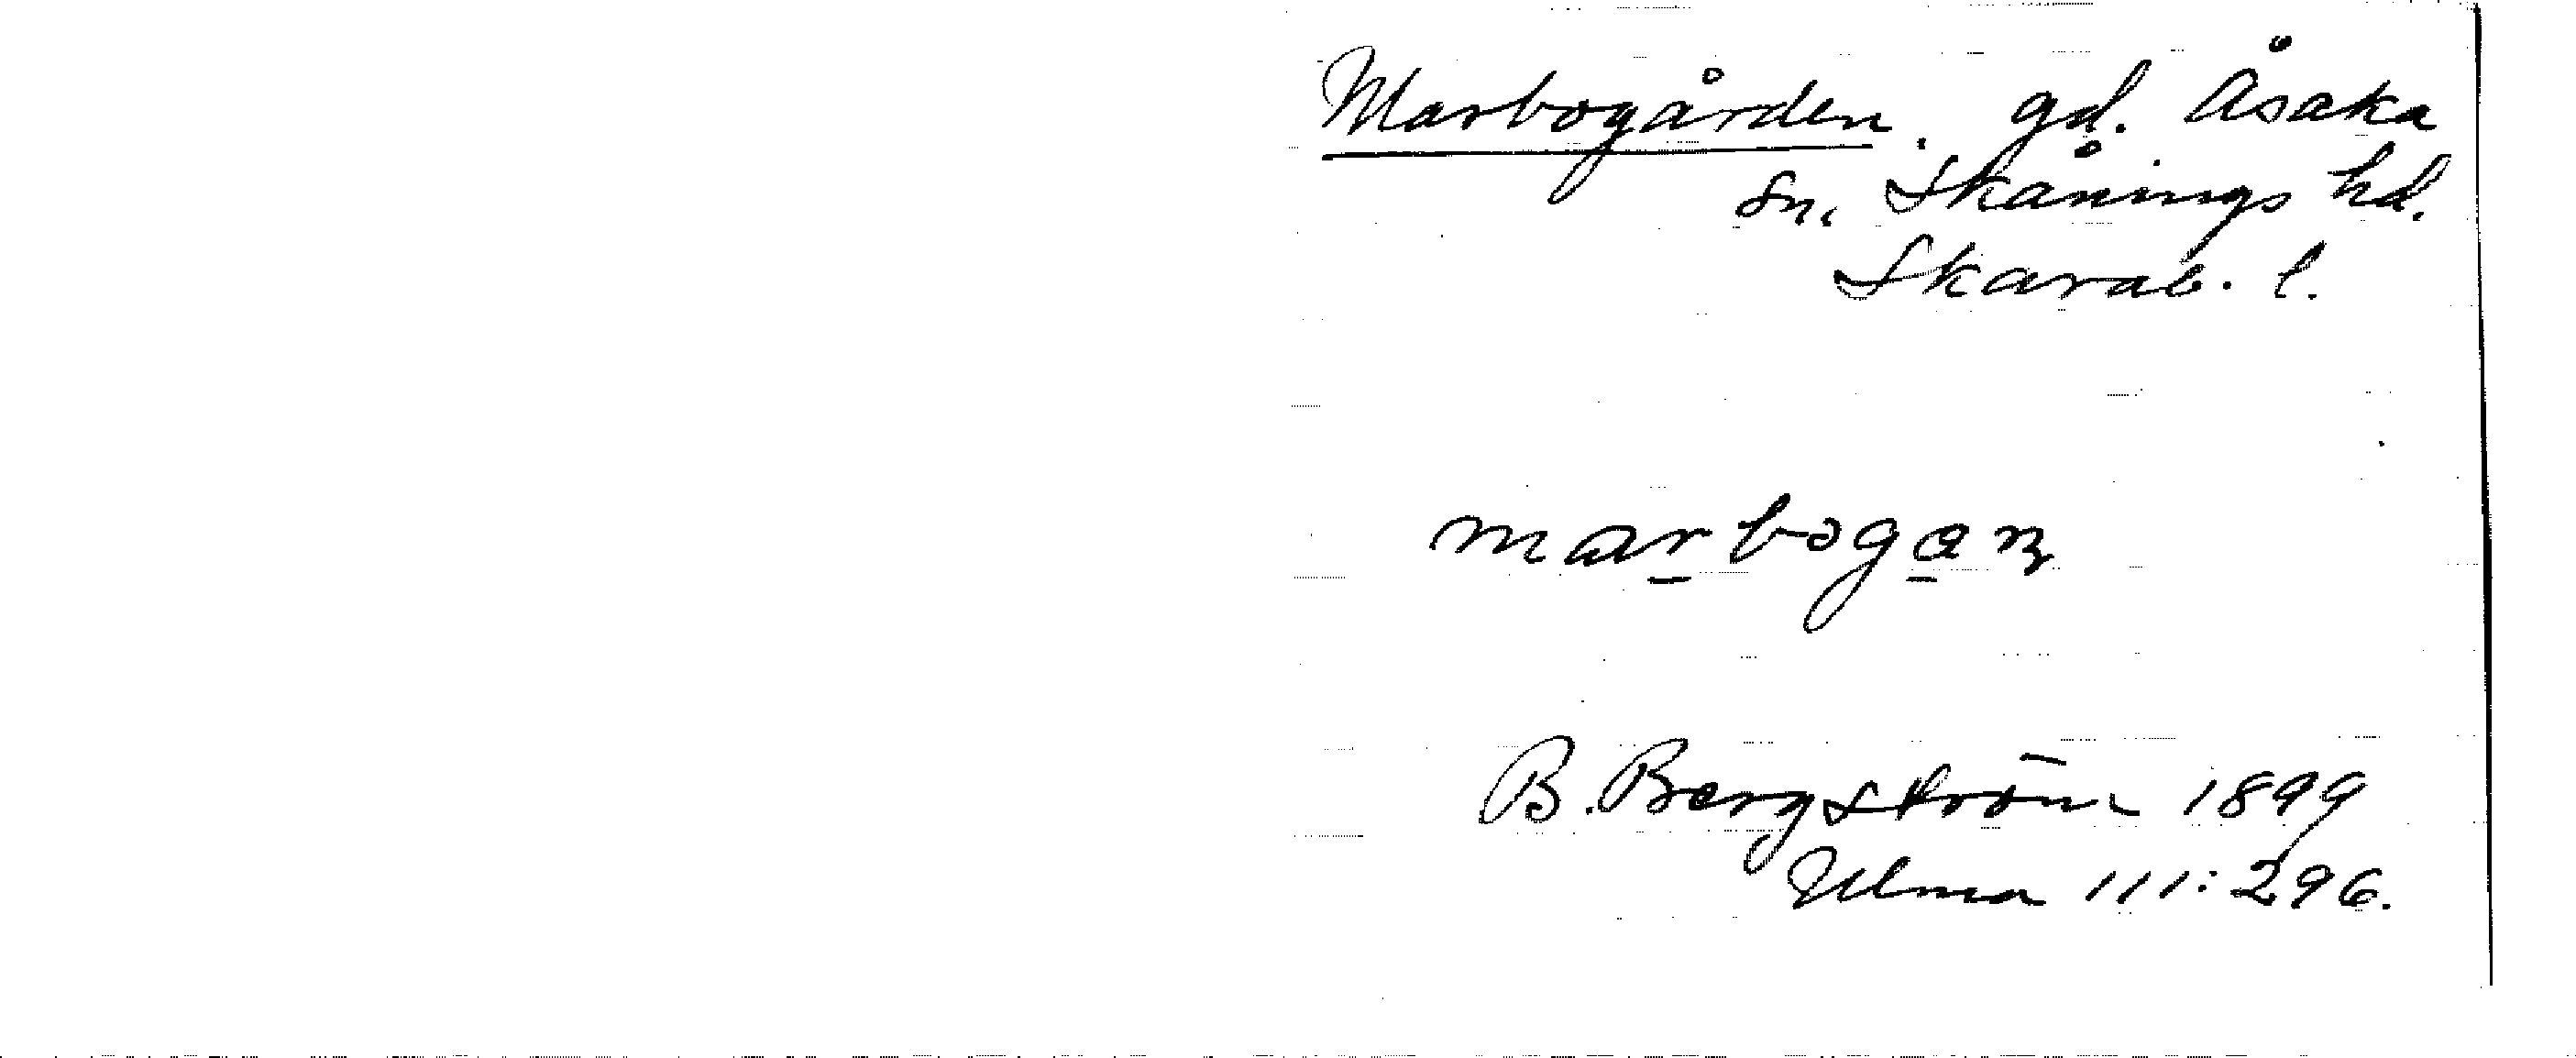 Marbogården. gd. Åsaka
sn. Skånings hd.
Skarab. l.
marbogan
B. Bergström 1899
Ulma 111:296.